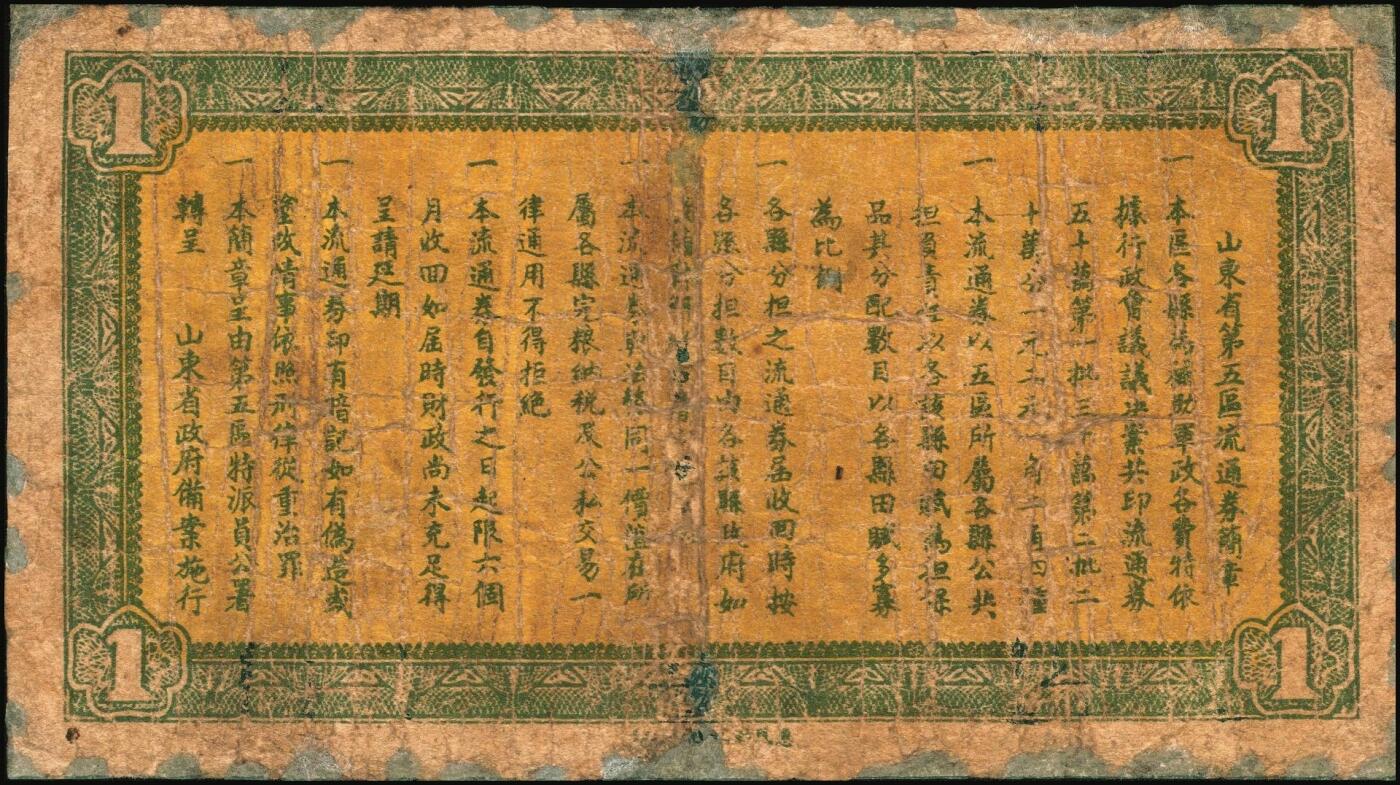 山東省第五區流通券簡章
一 本區各縣為籌助軍政各費特依
據行政會議議決案共印流通券
五十萬第一批三十萬第二批二
十萬分一元二元角二角四種
一 本流通券以五區所屬各縣公共
担負責任以各該縣田賦為担保
品其分配數目以各縣田賦多寡
為比例
一 各縣分担之流通券區收回時按
各縣分担數目由各該縣政府如
一 本流通券與法幣同一價值在所
屬各縣完粮納稅及公私交易一
律通用不得拒絕
一 本流通券自發行之日起限六個
月收回如屆時財政尚未充足得
呈請延期
一 本流通券印有暗記如有偽造或
塗改情事依照刑律從重治罪
一 本簡章呈由第五區特派員公署
轉呈 山東省政府備案施行
1
1
1
1